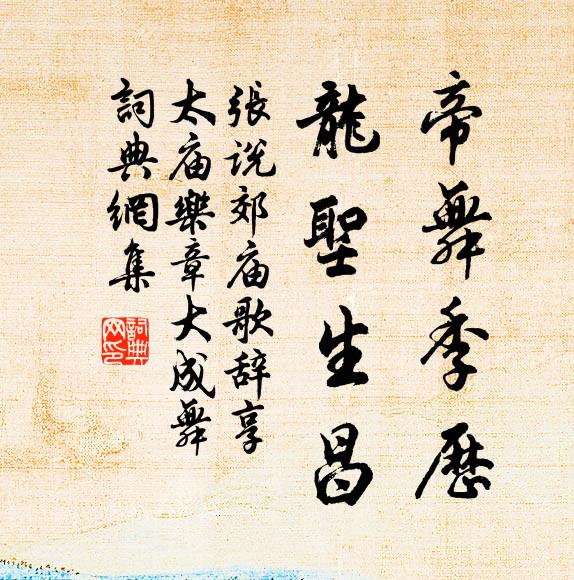 帝舞季歷
龍聖生昌
張说郊庙歌辞享
太庙樂章大成舞
詞典網集
詞典网印